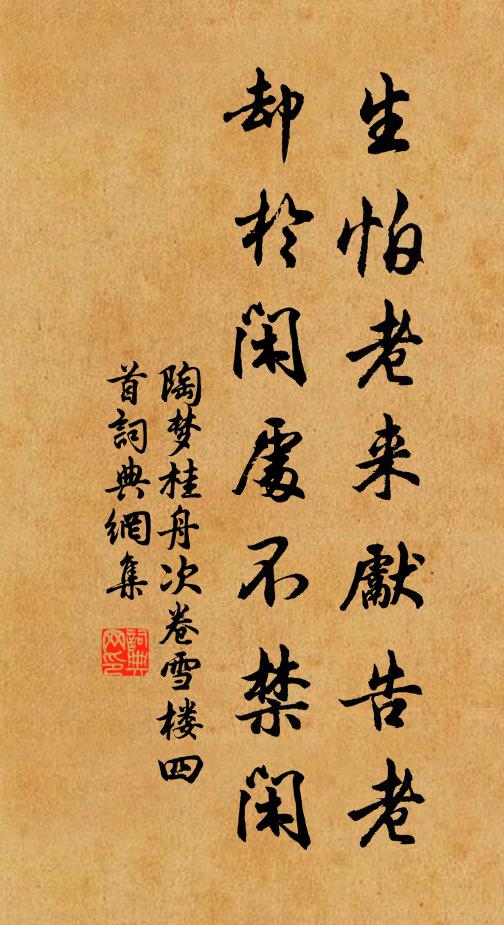 生怕老来獻告老
却於闲處不禁闲
陶梦桂舟次卷雪楼四
首詞典網集
詞典网印